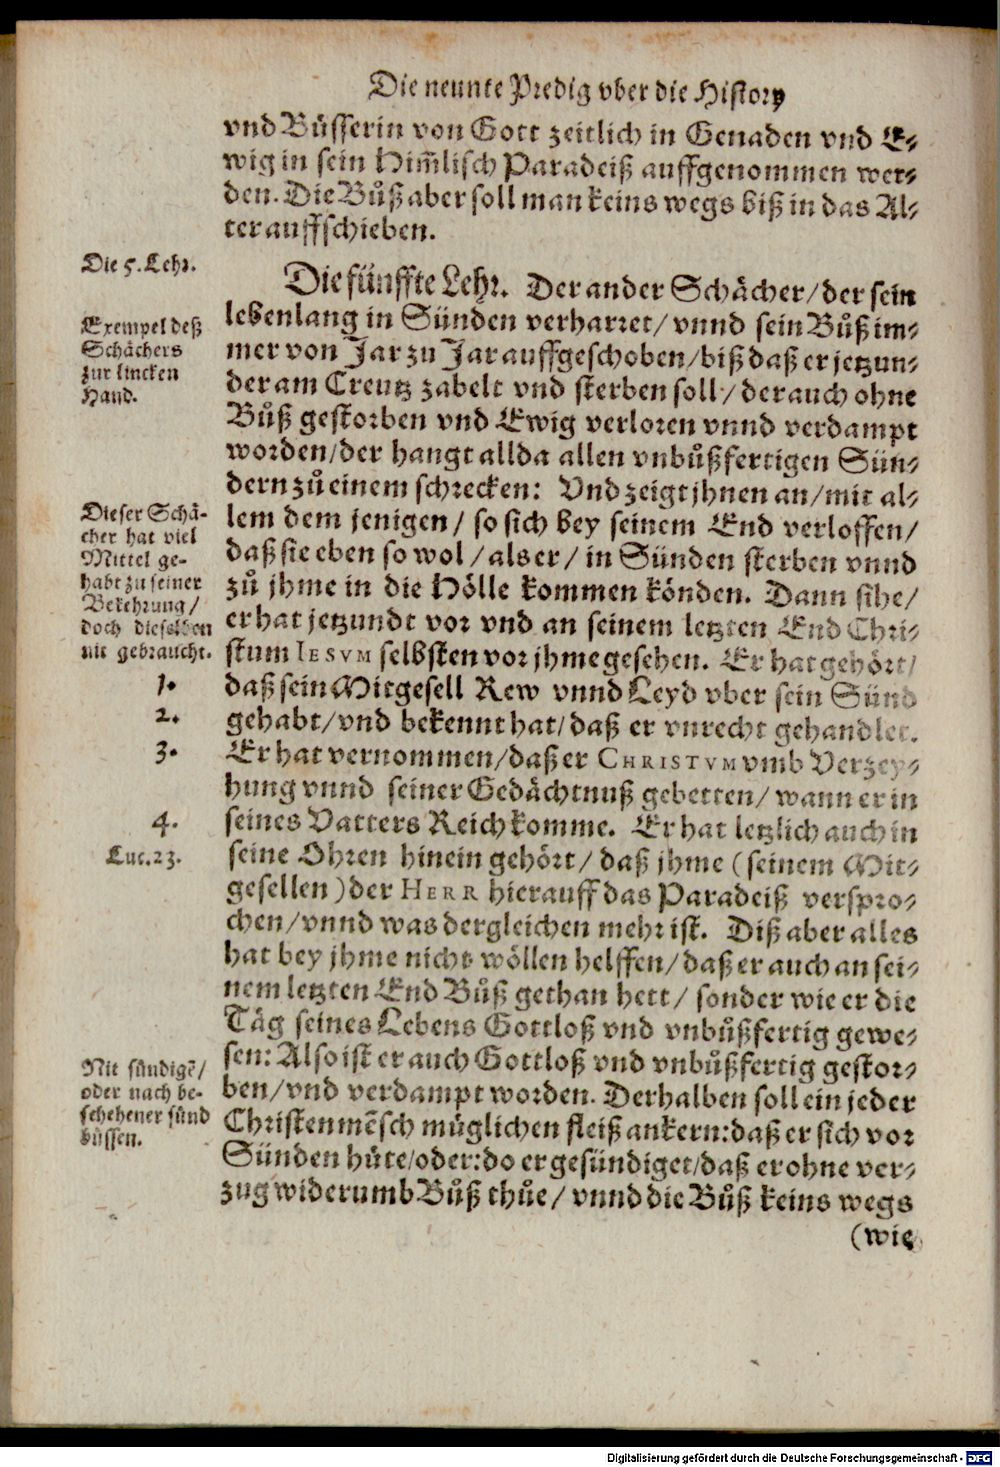 Die neunte Predig vber die History
vnd Büsserin von Gott zeitlich in Genaden vnd E⸗
wig in sein Him̃lisch Paradeiß auffgenommen wer⸗
den. Die Bůß aber soll man keins wegs biß in das Al⸗
ter auffschieben.
Die 5. Lehr.
Die fünffte Lehr. Der ander Schächer/ der sein
lebenlang in Sünden verharret/ vnnd sein Bůß im⸗
mer von Jar zu Jar auffgeschoben/ biß daß er jetzun⸗
der am Creutz zabelt vnd sterben soll/ der auch ohne
Bůß gestorben vnd Ewig verloren vnnd verdampt
worden/ der hangt allda allen vnbůßfertigen Sün⸗
dern zů einem schrecken: Vnd zeigt jhnen an/ mit al⸗
lem dem jenigen/ so sich bey seinem End verloffen/
daß sie eben so wol/ als er/ in Sünden sterben vnnd
zů jhme in die Hölle kommen könden. Dann sihe/
er hat jetzundt vor vnd an seinem letzten End Chri⸗
stum IESVM selbsten vor jhme gesehen. Er hat gehört/
daß sein Mitgesell Rew vnnd Leyd vber sein Sünd
gehabt/ vnd bekennt hat/ daß er vnrecht gehandlet.
Er hat vernommen/ daß er CHRISTVM vmb Verzey⸗
hung vnnd seiner Gedächtnuß gebetten/ wann er in
seines Vatters Reich komme. Er hat letzlich auch in
seine Ohren hinein gehört/ daß jhme (seinem Mit⸗
gesellen) der HERR hierauff das Paradeiß verspro⸗
chen/ vnnd was dergleichen mehr ist. Diß aber alles
hat bey jhme nicht wöllen helffen/ daß er auch an sei⸗
nem letzten End Bůß gethan hett/ sonder wie er die
Täg seines Lebens Gottloß vnd vnbůßfertig gewe⸗
sen: Also ist er auch Gottloß vnd vnbůßfertig gestor⸗
ben/ vnd verdampt worden. Derhalben soll ein jeder
Christenmẽsch müglichen fleiß ankern: daß er sich vor
Sünden hüte/ oder: do er gesündiget/ daß er ohne ver⸗
zug widerumb Bůß thůe/ vnnd die Bůß keins wegs
(wie
Exempel deß
Schächers
zur lincken
Hand.
Dieser Schä-
cher hat viel
Mittel ge-
habt zu seiner
Bekehrung/
doch dieselben
nit gebraucht.
1.
2.
3.
4.
Luc. 23.
Nit sündigẽ/
oder nach be-
schehener sünd
büssen.
Digitalisierung gefördert durch die Deutsche Forschungsgemeinschaft - DFG